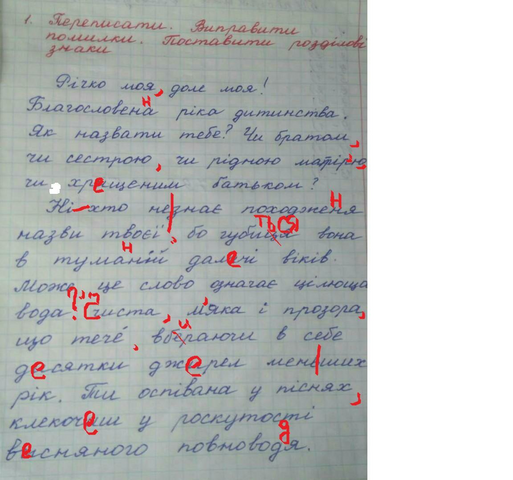 1. Переписати. Виправити
помилки. Поставити розділові
знаки
Річко моя, доле моя!
Благословена ріка дитинства.
Як назвати тебе? Чи братом,
чи сестрою, чи рідною матірю,
чи хрещеним батьком?
Ні-хто незнає походженя
назви твоєї, бо губиця вона
в туманій далечі віків.
Може, це слово означає цілюща
вода? Чиста, м'яка і прозора,
що тече, вбіраючи в себе
десятки джерел менших
рік. Ти оспівана у піснях,
клекочеш у роскутості
весняного повноводя.